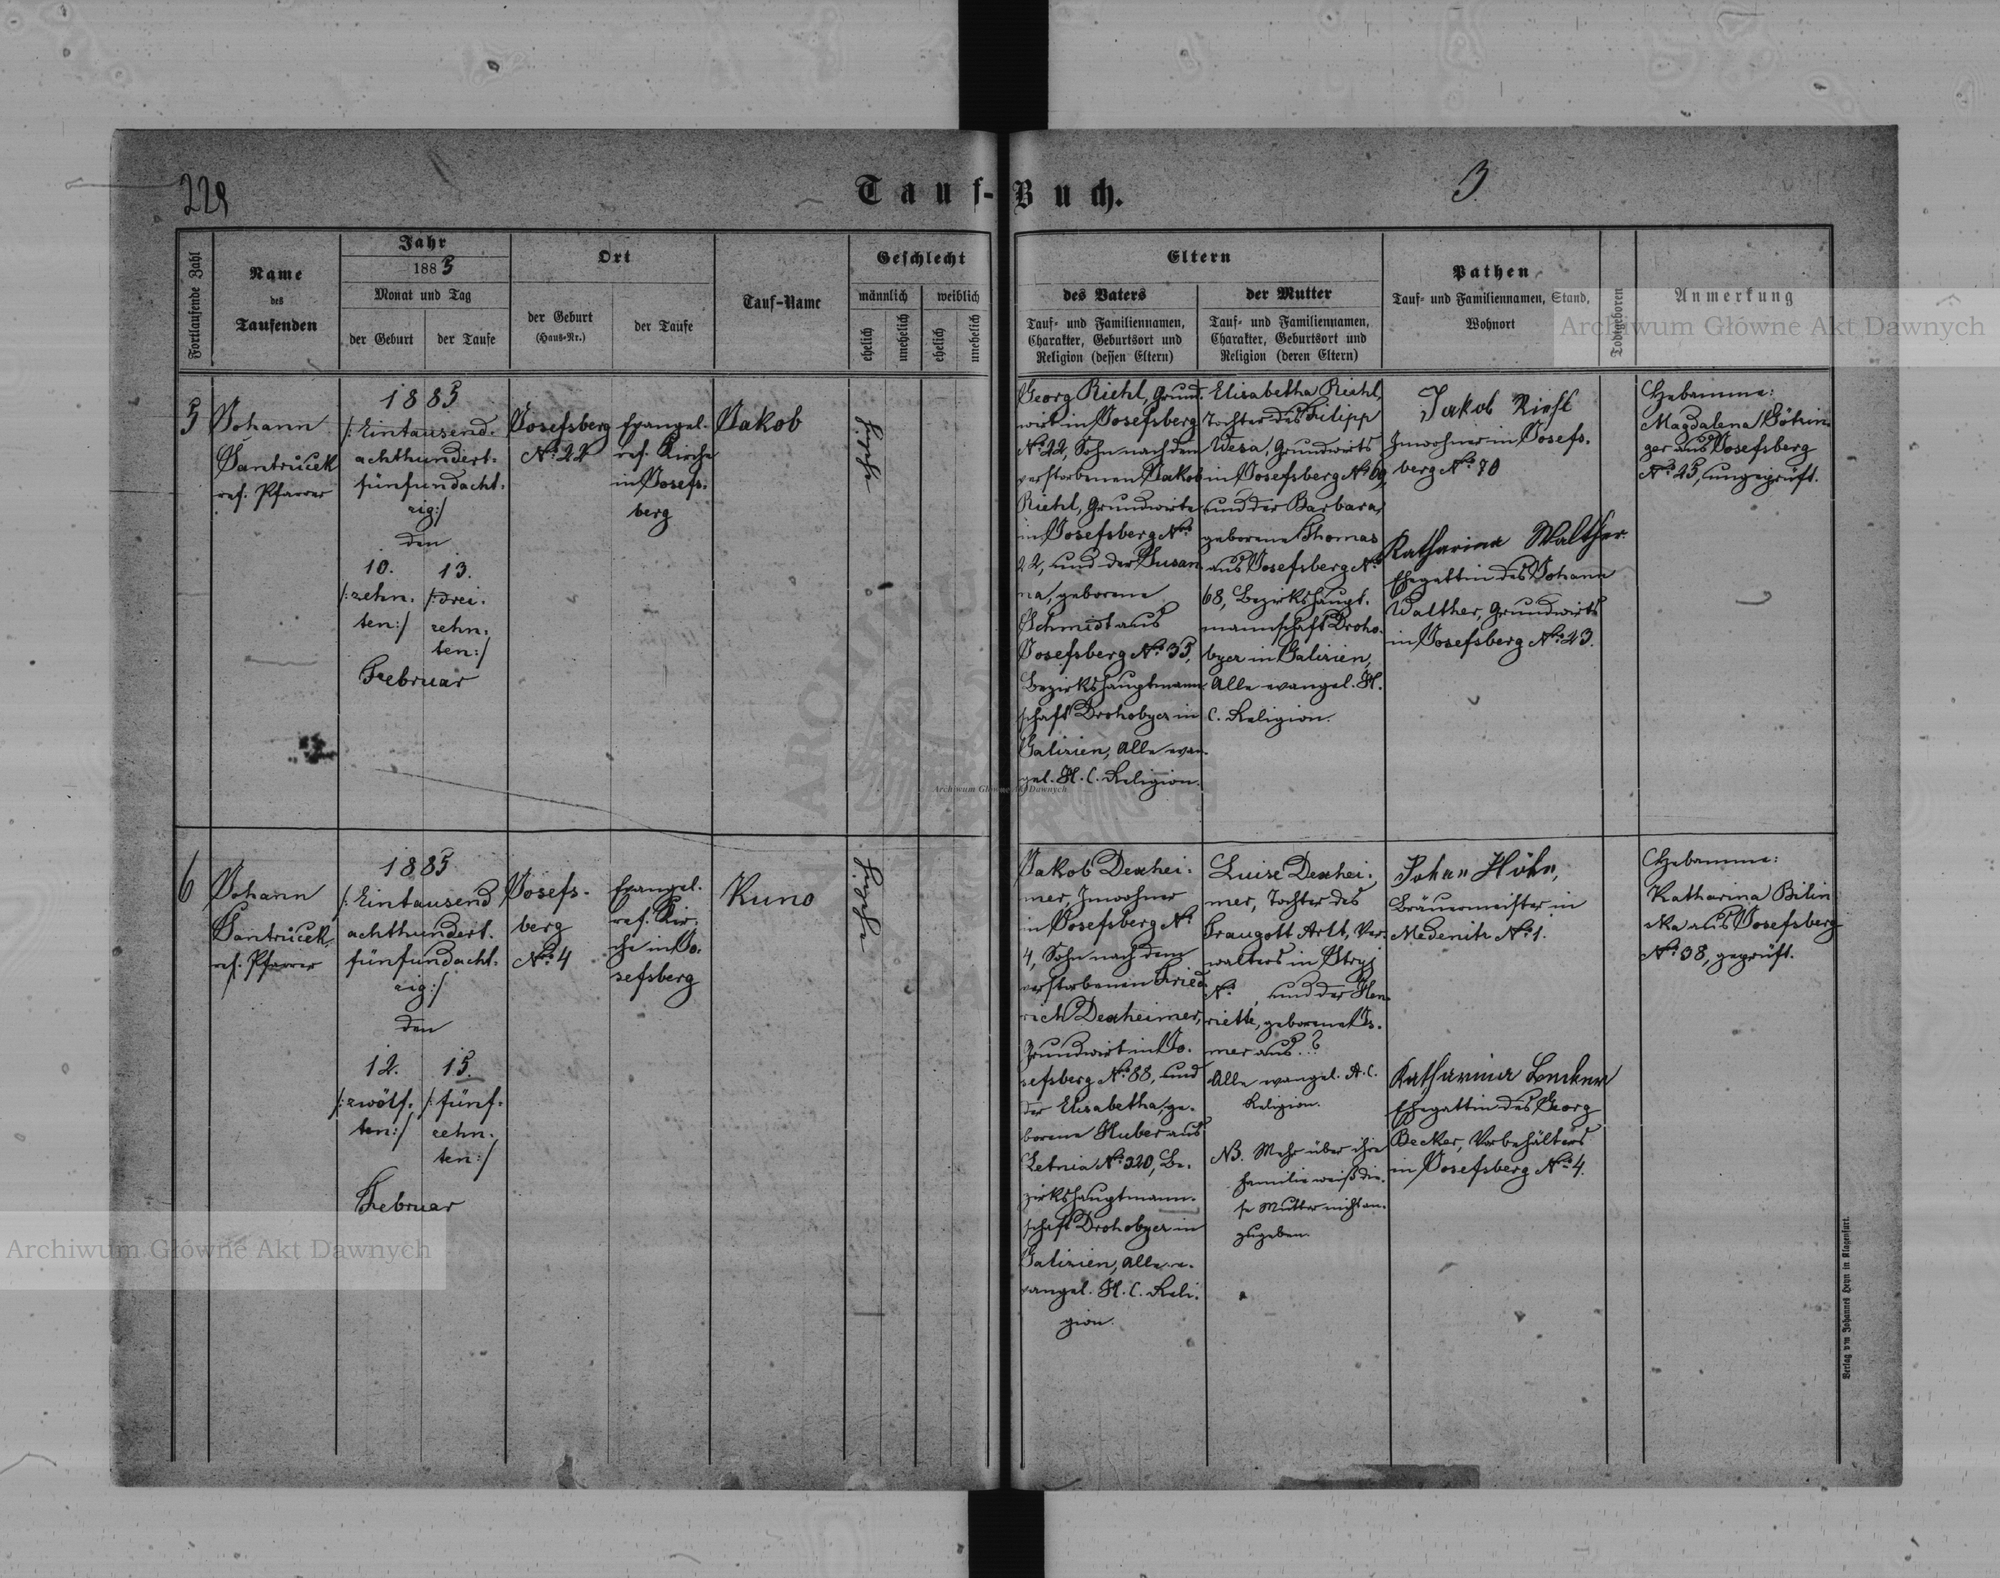 229
Tauf-Buch.
3.
Fortlaufende Zahl
Name
des
Taufenden
Jahr
1885
Monat und Tag
der Geburt
der Taufe
Ort
der Geburt
(Haus-Nr.)
der Taufe
Tauf-Name
Geschlecht
männlich
weiblich
ehelich
unehelich
ehelich
unehelich
Eltern
des Vaters
Tauf- und Familiennamen,
Charakter, Geburtsort und
Religion (dessen Eltern)
der Mutter
Tauf- und Familiennamen,
Charakter, Geburtsort und
Religion (deren Eltern)
Pathen
Tauf- und Familiennamen, Stand,
Wohnort
Todtgeboren
Anmerkung
5
Johann
Jantruček
ref. Pfarrer
1885
/: Eintausend-
achthundert-
fünfundacht-
zig :/
den
10.
/: zehn-
ten :/
13.
/: drei-
zehn-
ten :/
Februar
Josefsberg
No. 22
Evangel.
ref. Kirche
in Josefs-
berg
Jakob
Eheliche
Georg Riehl, Grund-
wirt in Josefsberg
No. 22, Sohn nach dem
verstorbenen Jakob
Riehl, Grundwirte
in Josefsberg No.
22, und der Susan-
na, geborene
Schmidt aus
Josefsberg No. 35,
Bezirkshauptmann-
schaft Drohobycz in
Galizien, Alle evan-
gel. H. C. Religion.
Elisabetha Riehl,
Tochter des Filipp
Wesa, Grundwirts
in Josefsberg No. 69,
und der Barbara,
geborene Thomas
aus Josefsberg No.
68, Bezirkshaupt-
mannschaft Droho-
bycz in Galizien,
Alle evangel. H.
C. Religion.
Jakob Riehl
Inwohner in Josefs-
berg No. 70
Katharina Walther
Ehegattin des Johann
Walther, Grundwirts
in Josefsberg No. 23.
Hebamme:
Magdalena
ger aus Josefsberg
No. 25, ungeprüft.
6
Johann
Jantruček
ref. Pfarrer
1885
/: Eintausend
achthundert-
fünfundacht-
zig :/
den
12.
/: zwölf-
ten :/
15.
/: fünf-
zehn-
ten :/
Februar
Josefs-
berg
No. 4
Evangel.
ref. Kir-
che in Jo-
sefsberg
Kuno
Eheliche
Jakob Dexhei-
mer, Inwohner
in Josefsberg No.
4, Sohn nach dem
verstorbenen Fried-
rich Dexheimer,
Grundwirt in Jo-
sefsberg No. 88, und
der Elisabetha, ge-
borene Huber aus
Letnia No. 320, Be-
zirkshauptmann-
schaft Drohobycz in
Galizien, Alle e-
vangel. H. C. Reli-
gion.
Luise Dexhei-
mer, Tochter des
Traugott Arlt, Ver-
walters in Stryj
No. , und der Hen-
riette, geborene Is-
mer aus ..?
Alle evangel. A. C.
Religion.
NB. Mehr über ihre
Familie weiß die-
se Mutter nicht an-
zugeben.
Johan Höhn,
Bräuermeister in
Medenitz No. 1.
Katharina
Ehegattin des Georg
Becker, Vorbehälters
in Josefsberg No. 4.
Hebamme:
Katharina Bilin-
ska aus Josefsberg
No. 38, geprüft.
Verlag von Johannes Heyn in Klagenfurt.
Archiwum Główne Akt Dawnych
Archiwum Główne Akt Dawnych
Archiwum Główne Akt Dawnych